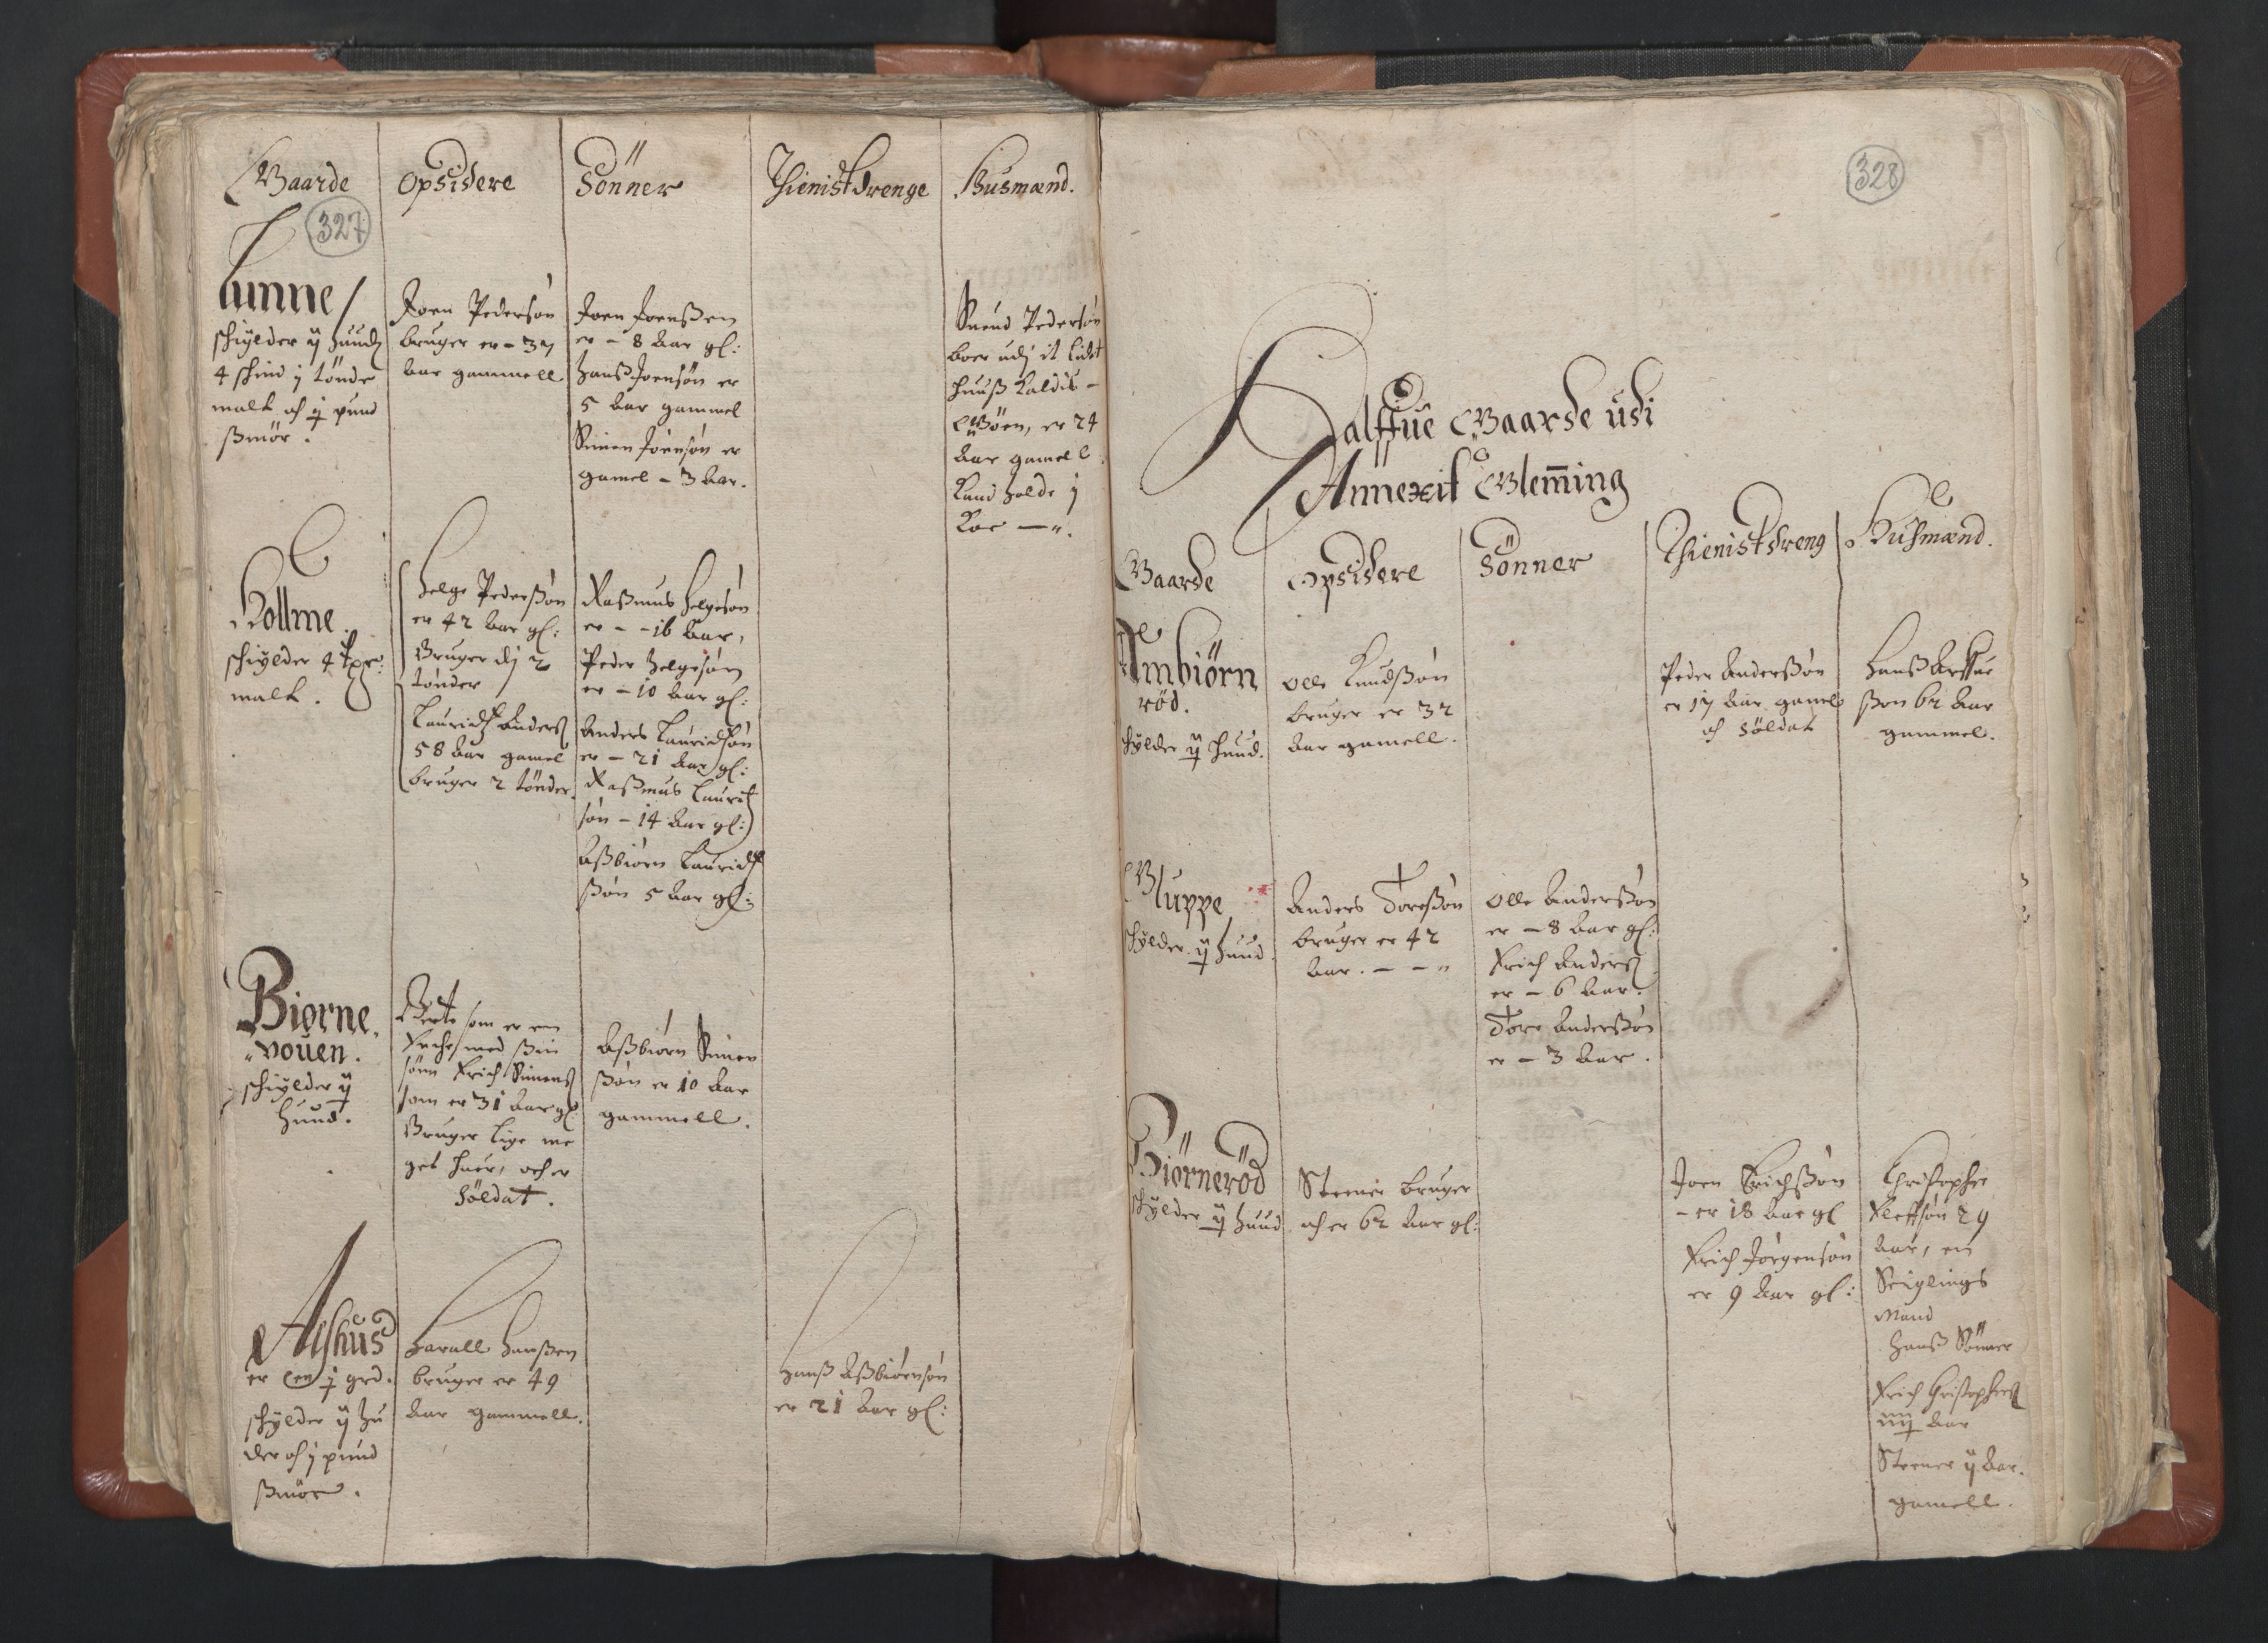 Gaarde
Opsidere
Sönner
Thienistdrenge
Husmænd.
327
Lunne
schÿlder ij huud
4 schind j tønde
malt och ij pund
Smör.
Joen Pedersøn
bruger er - 37
Aar gammell
Joen Joenssen
er - 8 Aar gl:
Hanss Joensøn er
5 Aar gammel
Simen Joensøn er
gamel - 3 Aar.
Knud Pedersøn
boer udj it lidet
huuss kaldis -
er 24
Aar gamell
kand holde j
koe
Hollme.
schÿlder 4
malt.
Helge Pederssøn
er 42 Aar gl:
Bruger dj 2
tønder
Lauridtz Anders
58 Aar gamel
bruger 2 tønder.
Rassmus Helgesøn
er - - 16 Aar,
Peder Helgesøn
er - 10 Aar gl:
Anders Lauridsøn
er - 21 Aar gl:
Rassmus Laurit
søn - 14 Aar gl:
Assbiørn Lauridtz
ssøn 5 Aar gl:
Biørne
vouen.
schÿlder ij
huud.
Berte som er en
Enche, med ssin
sønn Erich Simens
som er 31 Aar gl
Bruger lige me
get huer, och er
Söldat.
Assbiørn Simen
ssøn er 10 Aar
gammell.
Alshus
er en grd.
schÿlder ij hu
der och j pund
Smør.
Harall Hanssen
bruger er 49
Aar gammell.
Hanss Assbiørnsøn
er 21 Aar gl:
328
Halffue Gaarde udi
Annexit Glem̅ing
Gaarde
Opsidere
Sönner
Thienistdreng
Husmænd.
Ambiörn
röd.
schÿlder ij huud.
Olle Knudssøn
bruger er 32
Aar gamell.
Peder Anderssøn
er 17 Aar gamel
och Söldat
Hanss
ssøn 62 Aar
gammel.
Gluppe
schÿlder ij huud
Anders Toressøn
bruger er 42
Aar. - - "
Olle Anderssøn
er - 8 Aar gl:
Erich Anders
er - 6 Aar.
Tore Anderssøn
er - 3 Aar.
Biörneröd
schÿlder ij huud
Steener bruger
och er 62 Aar gl:
Joen Erichssøn
- er 18 Aar gl
Erich Jörgensøn
er 9 Aar gl:
Christopher
29
Aar, en
Seiglings
Mand
Hanss Sönner
Erich Christophers
iiij Aar
Steener ij Aar.
gamell.